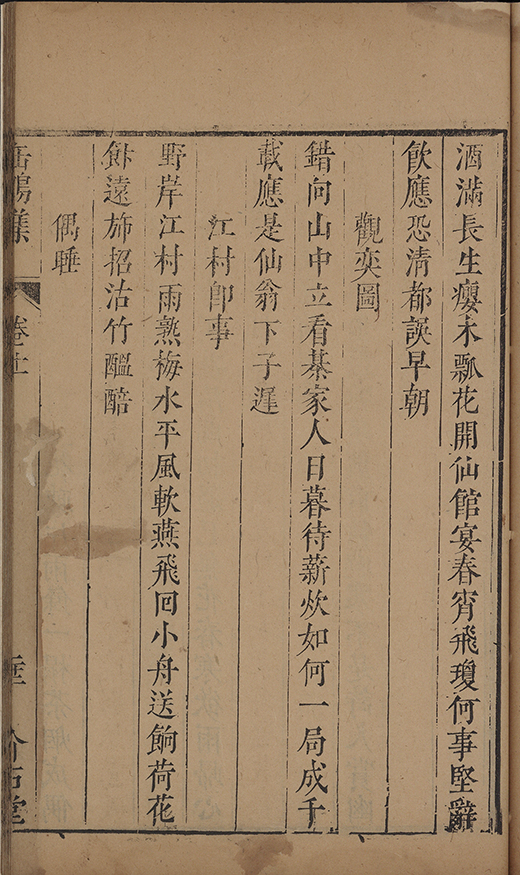 酒滿長生癭木瓢花開仙館宴春宵飛瓊何事堅辭
飲應恐清都誤早朝
觀奕圖
錯向山中立看棊家人日暮待薪炊如何一局成千
載應是仙翁下子遲
江村即事
野岸江村雨熟梅水平風軟燕飛回小舟送餉荷花
餘遠斾招沽竹醞醅
偶睡
卷十